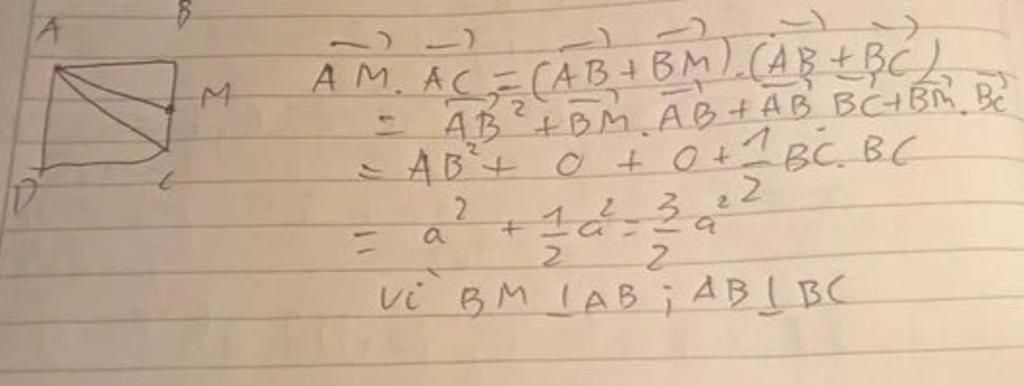 A B
M
D C
AM⃗ . AC⃗ = (AB⃗ + BM⃗) . (AB⃗ + BC⃗)
= AB⃗² + BM⃗ . AB⃗ + AB⃗ BC⃗ + BM⃗ . BC⃗
= AB² + 0 + 0 + 1/2 BC . BC
= a² + 1/2 a² = 3/2 a²
Vì BM ⊥ AB ; AB ⊥ BC